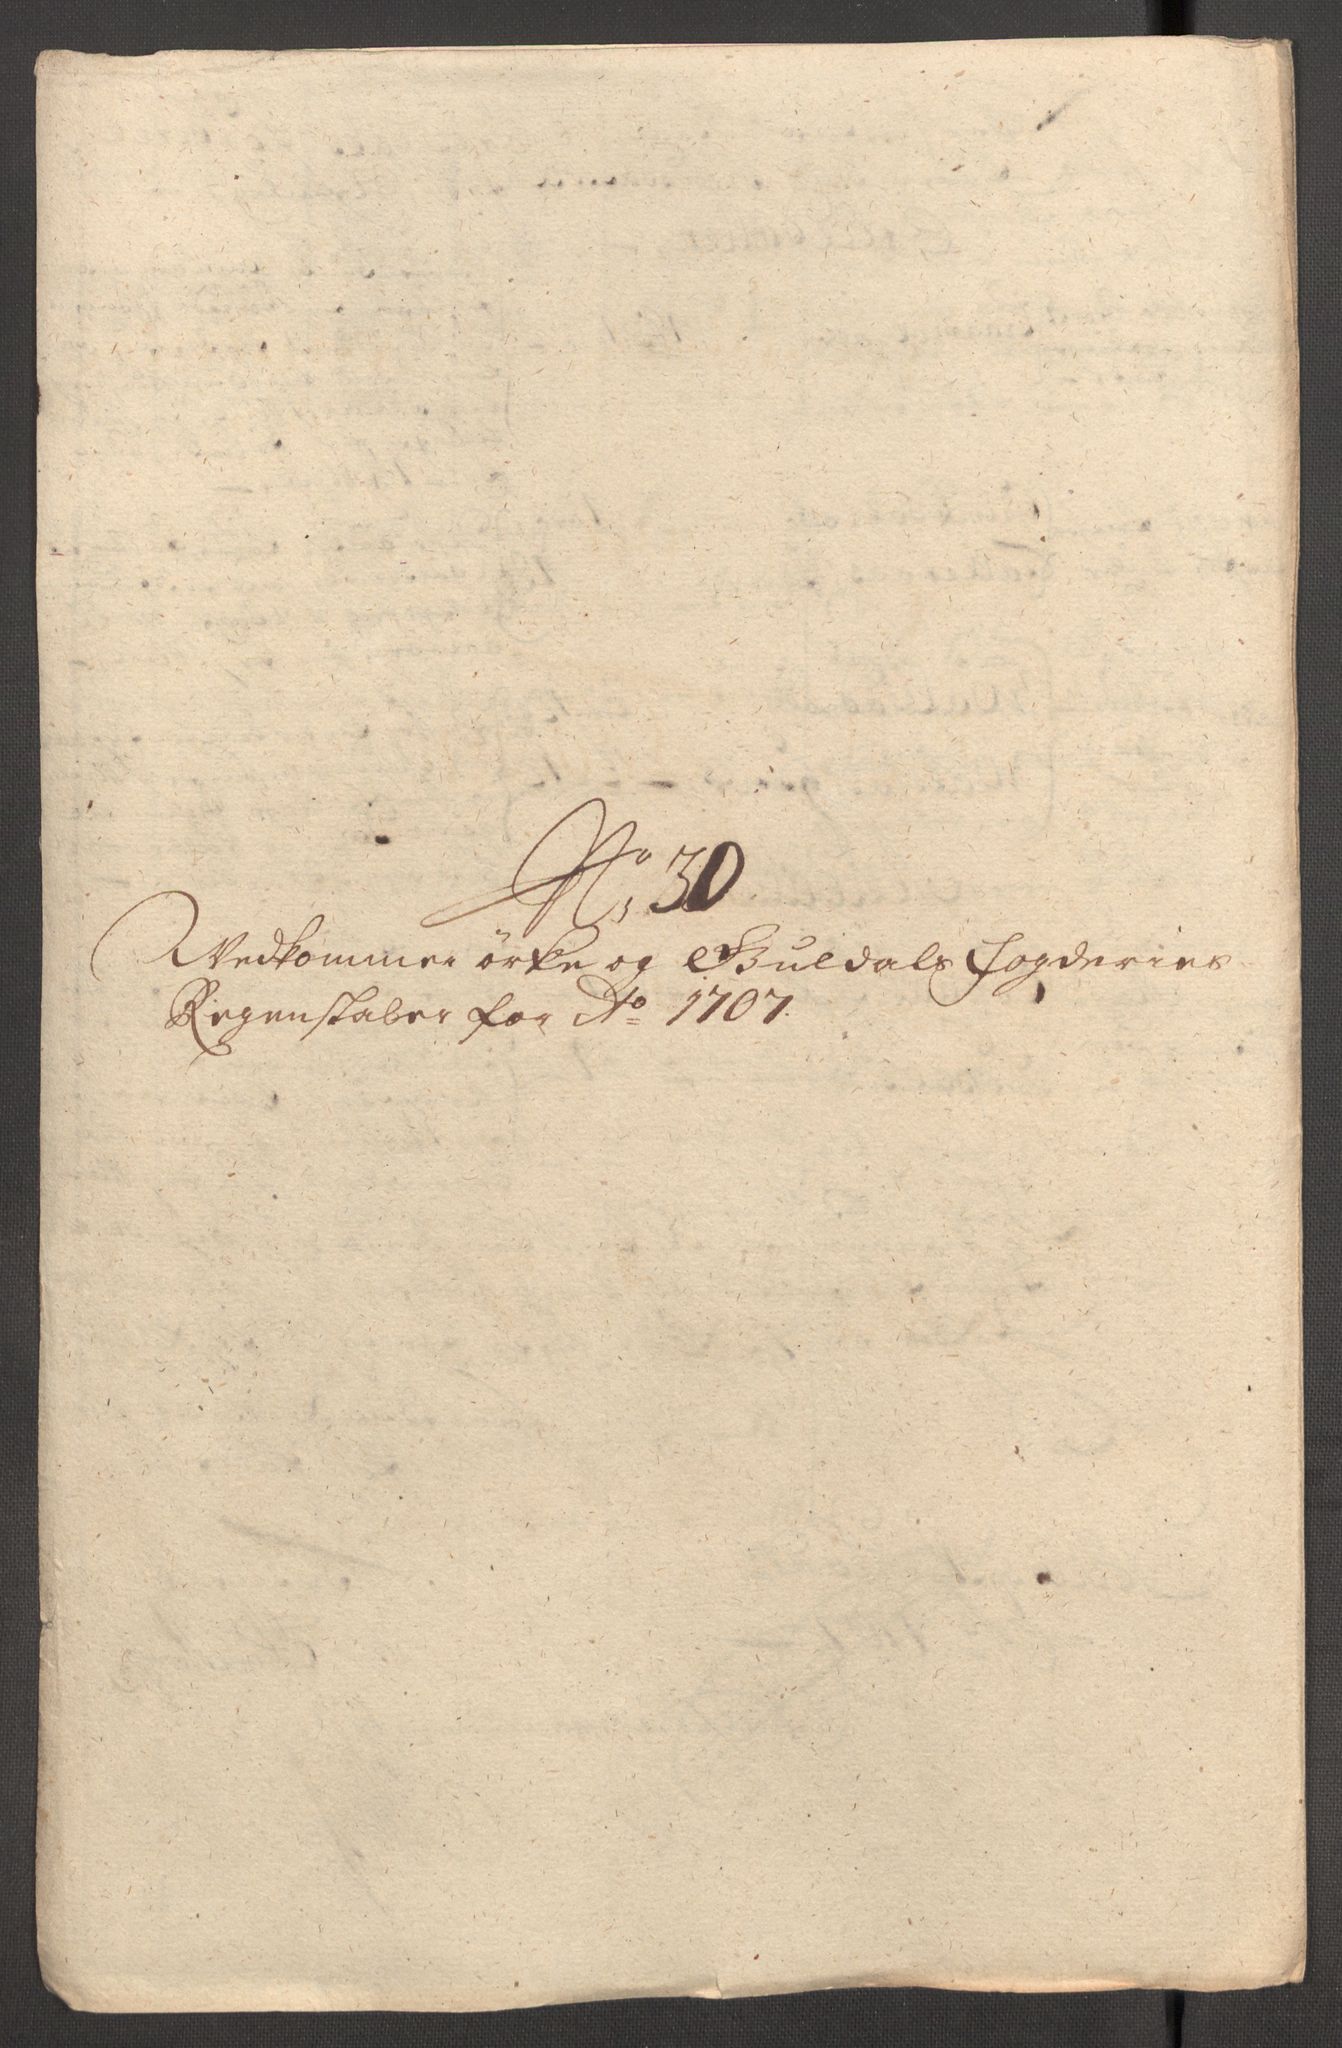 No, 30
Vedkommer örke og Guldals fogderies
Regenskaber for Ao 1707.